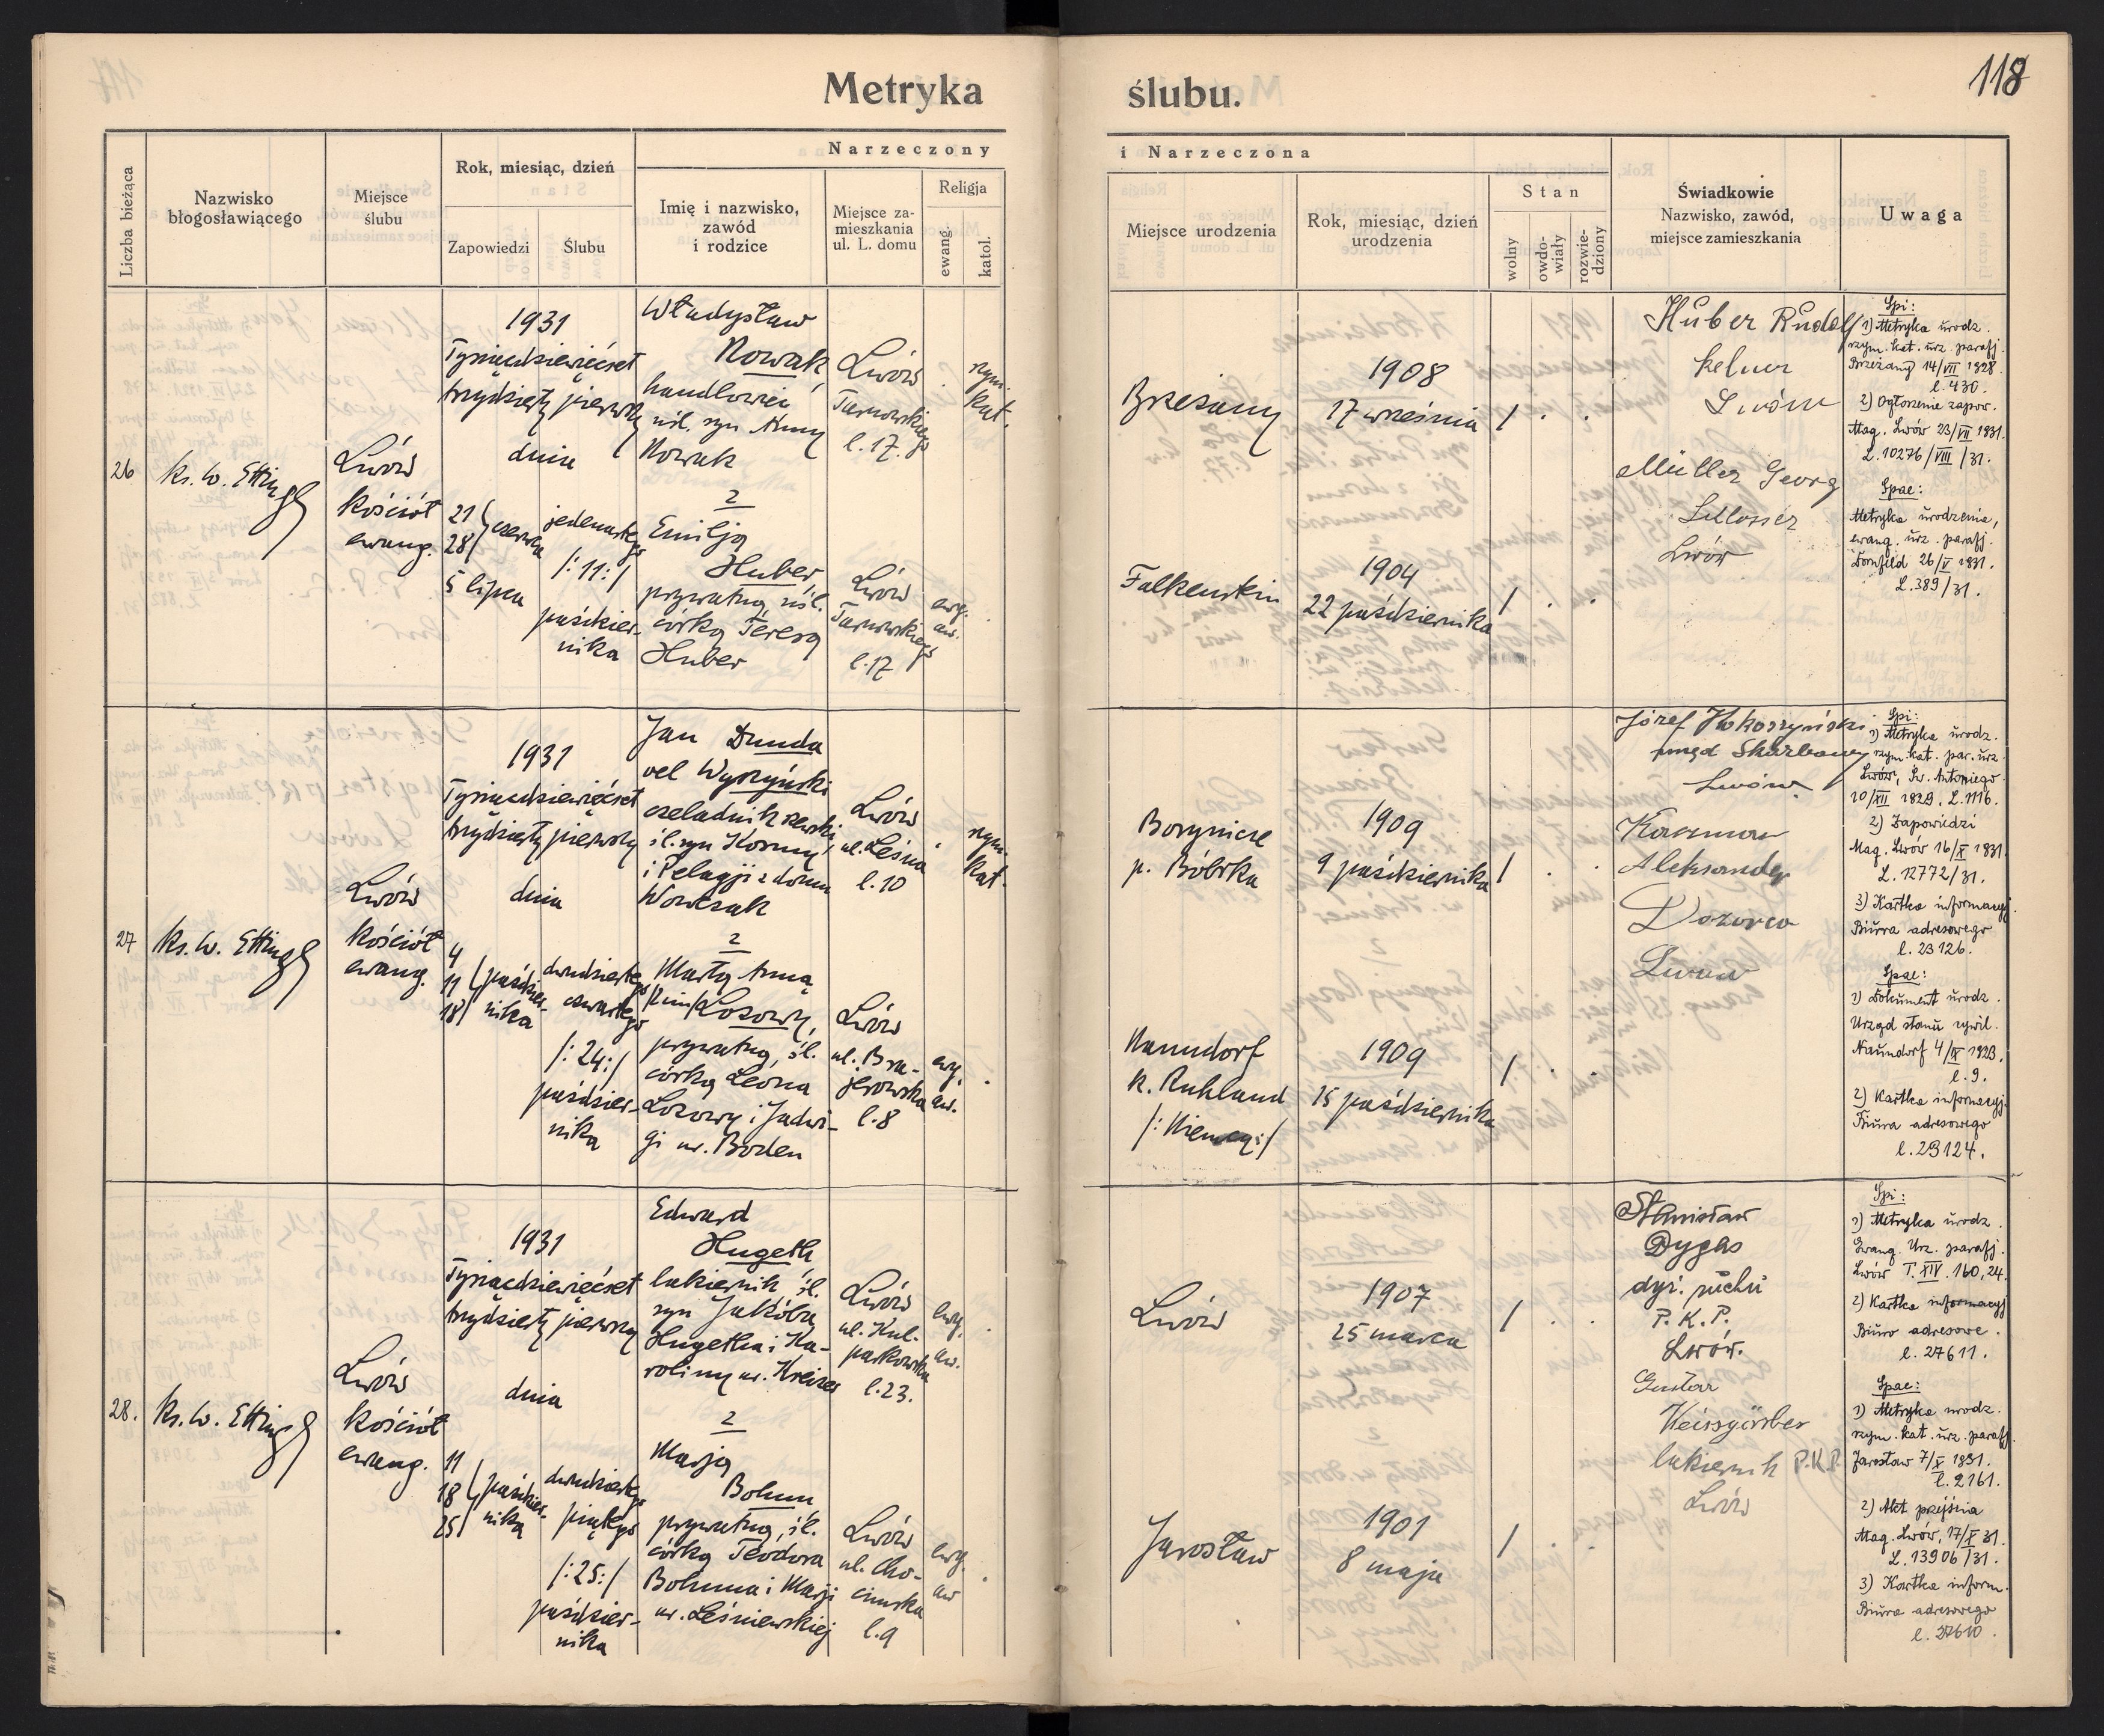 118
Metryka
ślubu.
Liczba bieżąca
Nazwisko
błogosławiącego
Miejsce
ślubu
Rok, miesiąc, dzień
Zapowiedzi
Ślubu
Narzeczony
Imię i nazwisko,
zawód
i rodzice
Miejsce za-
mieszkania
ul. L. domu
Religja
ewang.
katol.
i Narzeczona
Miejsce urodzenia
Rok, miesiąc, dzień
urodzenia
Stan
wolny
owdo-
wiały
rozwie-
dziony
Świadkowie
Nazwisko, zawód,
miejsce zamieszkania
Uwaga
26
ks. W. Ettinger
Lwów
kościół
ewang.
1931
Tysiącdziewięćset
trzydziesty pierwszy
dnia
21
28
czerwca
5 lipca
jedenastego
/:11:/
paździer-
nika
Władysław
Nowak
handlowiec
nśl. syn Anny
Nowak
z
Emilją
Huber,
prywatną, nśl.
córką Teresy
Huber
Lwów
Tarnowskiego
l. 17.
Lwów
Tarnowskiego
l. 17
rzym.
kat.
ewg.
aw.
Brzeżany
Falkenstein
1908
17 września
1904
22 października
Huber Rudolf
kelner
Lwów
Müller Georg
Schlosser
Lwów
Spi:
1) Metryka urodz.
rzym. kat. urz. parafj.
Brzeżany 14/VII 1928
l. 430.
2) Ogłoszenie zapow.
Mag. Lwów 23/VII 1931.
L. 10276/VIII/31.
Spae:
Metryka urodzenia,
ewang. urz. parafj.
Dornfeld 26/V 1931.
L. 389/31.
27
ks. W. Ettinger
Lwów
kościół
ewang.
1931
Tysiącdziewięćset
trzydziesty pierwszy
dnia
4
11
18
paździer-
nika
dwudziestego
czwartego
/:24:/
paździer-
nika
Jan Dunda
vel Wyszyński
czeladnik szewski,
śl. syn Kosmy
i Pelagji z domu
Wowczak
z
Martą Anną
Lozowy,
prywatną, śl.
córką Leona
Lozowy i Jadwi-
gi ur. Boden
Lwów
ul. Leśna
l. 10
Lwów
ul. Bra-
jerowska
l. 8
rzym.
kat.
ewg.
aw.
Borynicze
p. Bóbrka
Naundorf
k. Ruhland
/:Niemcy:/
1909
9 października
1909
15 października
Józef
Lwów
Aleksander
Dozorca
Lwów
Spi:
1) Metryka urodz.
rzym. kat. par. urz.
Lwów, Św. Antoniego
10/XII 1929. L. 1116.
2) Zapowiedzi
Mag. Lwów 16/X 1931
L. 12772/31.
3) Kartka informacyj.
Biura adresowego
l. 23126.
Spae:
1) Dokument urodz.
Urząd stanu cywil.
Naundorf 4/IX 1923.
l. 9.
2) Kartka informacyj.
Biura adresowego
l. 23124.
28.
ks. W. Ettinger
Lwów
kościół
ewang.
1931
Tysiącdziewięćset
trzydziesty pierwszy
dnia
11
18
25
paździer-
nika
dwudziestego
piątego
/:25:/
paździer-
nika
Edward
Hugeth,
cukiernik śl.
syn Jakóba
Hugetha i Ka-
roliny ur. Kreizer
z
Marją
Bohm
prywatną, śl.
córką Teodora
Bohma i Marji
ur. Leśniewskiej
Lwów
ul. Kul-
parkowska
l. 23.
Lwów
ul. Cho-
cimska
l. 9
ewg.
aw.
ewg.
aw
Lwów
Jarosław
1907
25 marca
1901
8 maja
Stanisław
Dygas
dyr. ruchu
P.K.P.
Lwów.
Gustav
Weissgärber
cukiernik P.K.P.
Lwów
Spi:
1) Metryka urodz.
Ewang. Urz. parafj.
Lwów T. XIV. 160,24.
2) Kartka informacyj
Biuro adresowe.
l. 27611.
Spae:
1) Metryka urodz.
rzym. kat. urz. parafj.
Jarosław 7/X 1931.
l. 2161.
2) Akt przejścia
Mag. Lwów, 17/X 31.
L. 13906/31.
3) Kartka inform.
Biura adresowego
l. 27610.